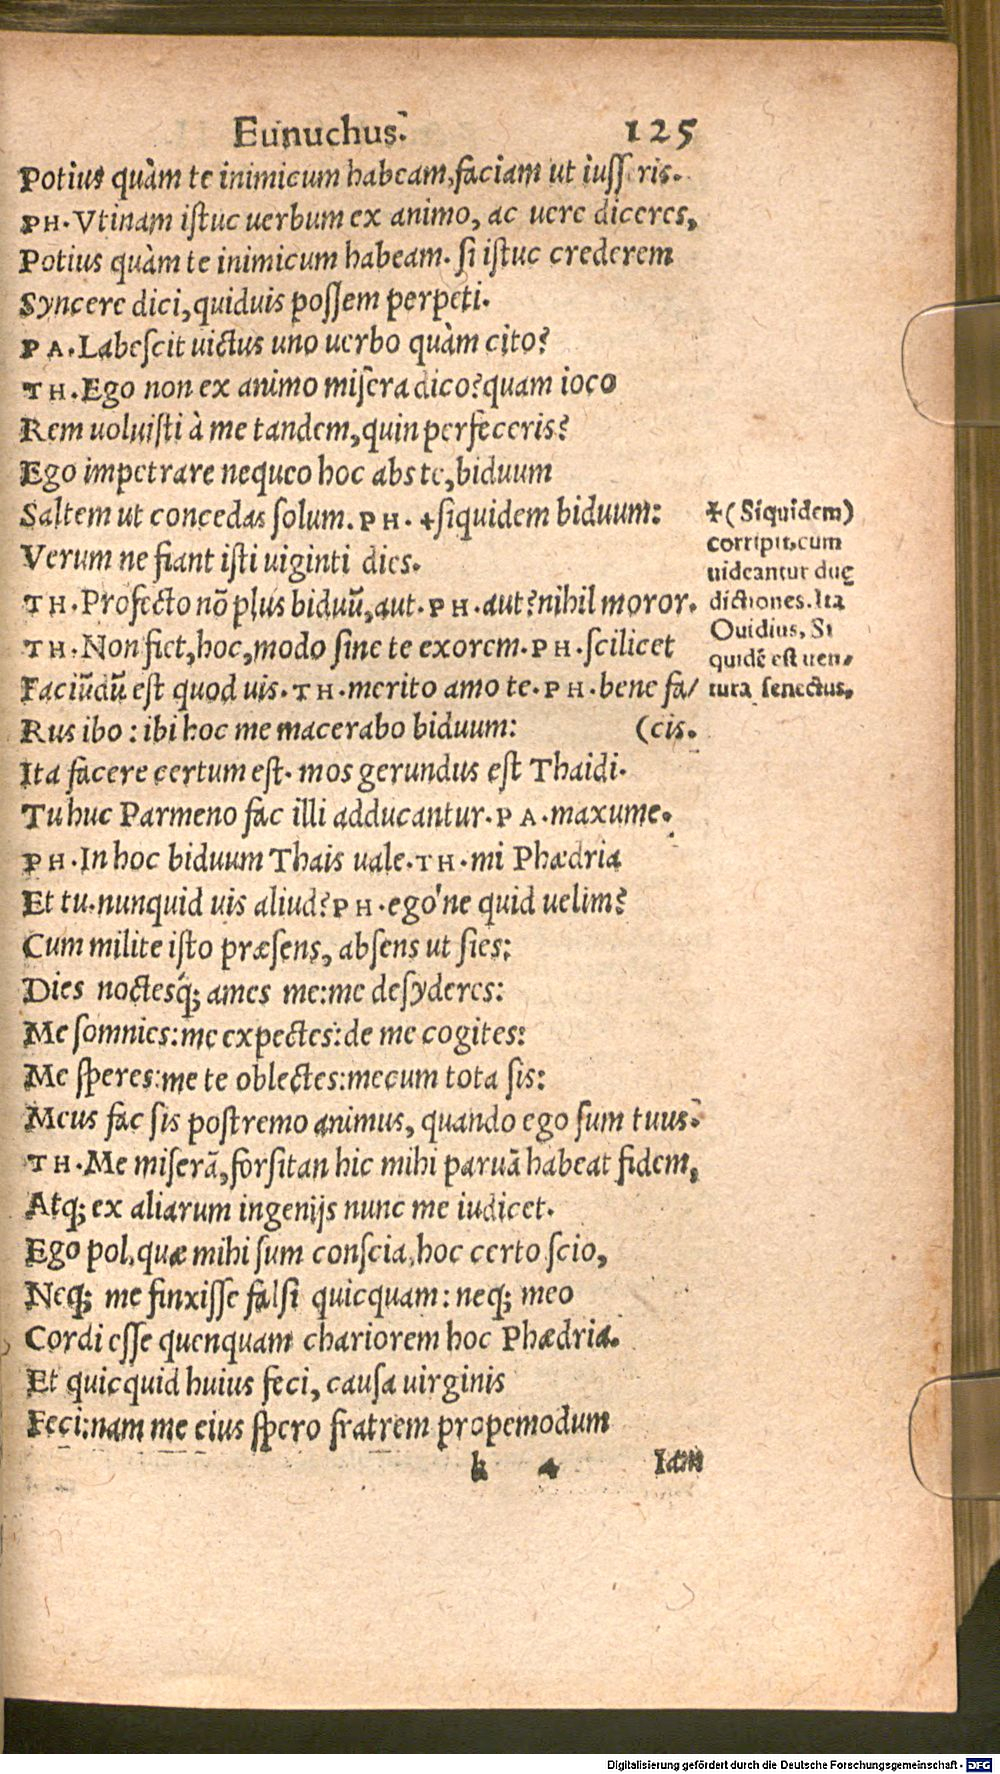 Eunuchus. 125
Potius quàm te inimicum habeam, faciam ut iusseris.
PH. Vtinam istuc uerbum ex animo, ac uere diceres,
Potius quàm te inimicum habeam. si istuc crederem
Syncere dici, quiduis possem perpeti.
PA. Labescit uictus uno uerbo quàm cito?
TH. Ego non ex animo misera dico? quam ioco
Rem uoluisti à me tandem, quin perfeceris?
Ego impetrare nequeo hoc abs te, biduum
Saltem ut concedas solum. PH. +siquidem biduum:
Verum ne fiant isti uiginti dies.
TH. Profecto nõ plus biduũ, aut. PH. aut? nihil moror.
TH. Non fiet, hoc, modo sine te exorem. PH. scilicet
Faciũdũ est quod uis. TH. merito amo te. PH. bene fa/
Rus ibo: ibi hoc me macerabo biduum: (cis.
Ita facere certum est. mos gerundus est Thaidi.
Tu huc Parmeno fac illi adducantur. PA. maxume.
PH. In hoc biduum Thais uale. TH. mi Phædria
Et tu. nunquid uis aliud? PH. ego'ne quid uelim?
Cum milite isto præsens, absens ut sies:
Dies noctesq́; ames me: me desyderes:
Me somnies: me expectes: de me cogites:
Me speres: me te oblectes: mecum tota sis:
Meus fac sis postremo animus, quando ego sum tuus.
TH. Me miserã, forsitan hic mihi paruã habeat fidem,
Atq; ex aliarum ingenijs nunc me iudicet.
Ego pol, quæ mihi sum conscia, hoc certo scio,
Neq; me finxisse falsi quicquam: neq; meo
Cordi esse quenquam chariorem hoc Phædria.
Et quicquid huius feci, causa uirginis
Feci: nam me eius spero fratrem propemodum
k 4 Iam
+(Siquidem)
corripit, cum
uideantur duę
dictiones. Ita
Ouidius, Si
quidẽ est uen/
tura senectus.
Digitalisierung gefördert durch die Deutsche Forschungsgemeinschaft - DFG